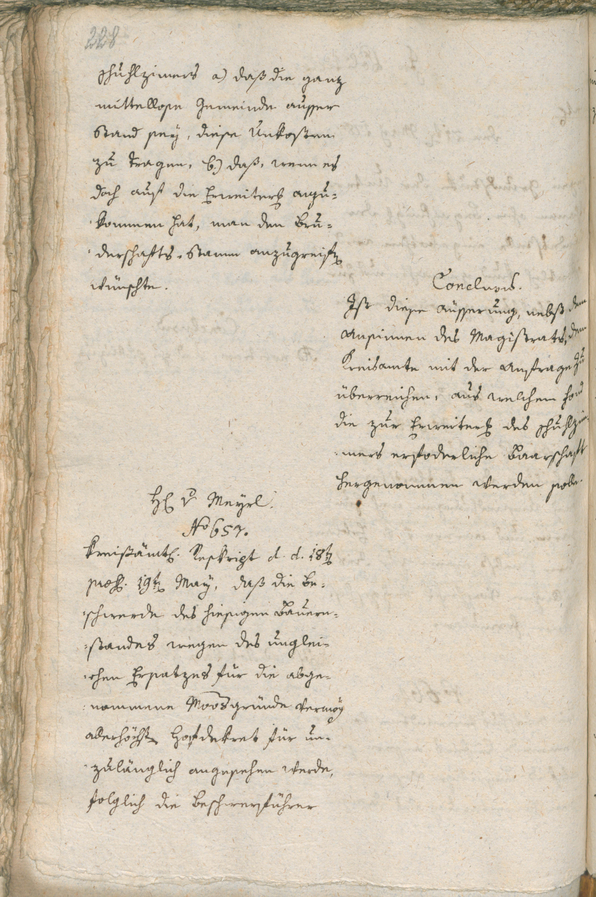 228
schuhlzimers a) daß die ganz
mittellose Gemeinde ausser
Stand sey, diese Unkosten
zu tragen, b) daß, wenn es
doch auf die Erweiterg anzu-
kommen hat, man den Bru-
derschafts-Stamm anzugreifen
wünschte.
Conclusum.
Ist diese äusserung, nebst dem
Ansinnen des Magistrats, dem
Kreisamte mit der Anfrage zu
überreichen, aus welchem fond
die zur Erweiterg des schuhlzi-
mers erforderliche Baarschaft
hergenommen werden solle.
H. v. Meyrl.
No 657.
Kreisämtl. Reskript d. d. 18t
praes. 19t May, daß die Be-
schwerde des hiesigen Bauern-
standes wegen des unglei-
chen Ersatzes für die abge-
nommene Moosgründe vermög
allerhöchst Hofdekret für un-
zulänglich angesehen werde,
folglich die Beschwersführer